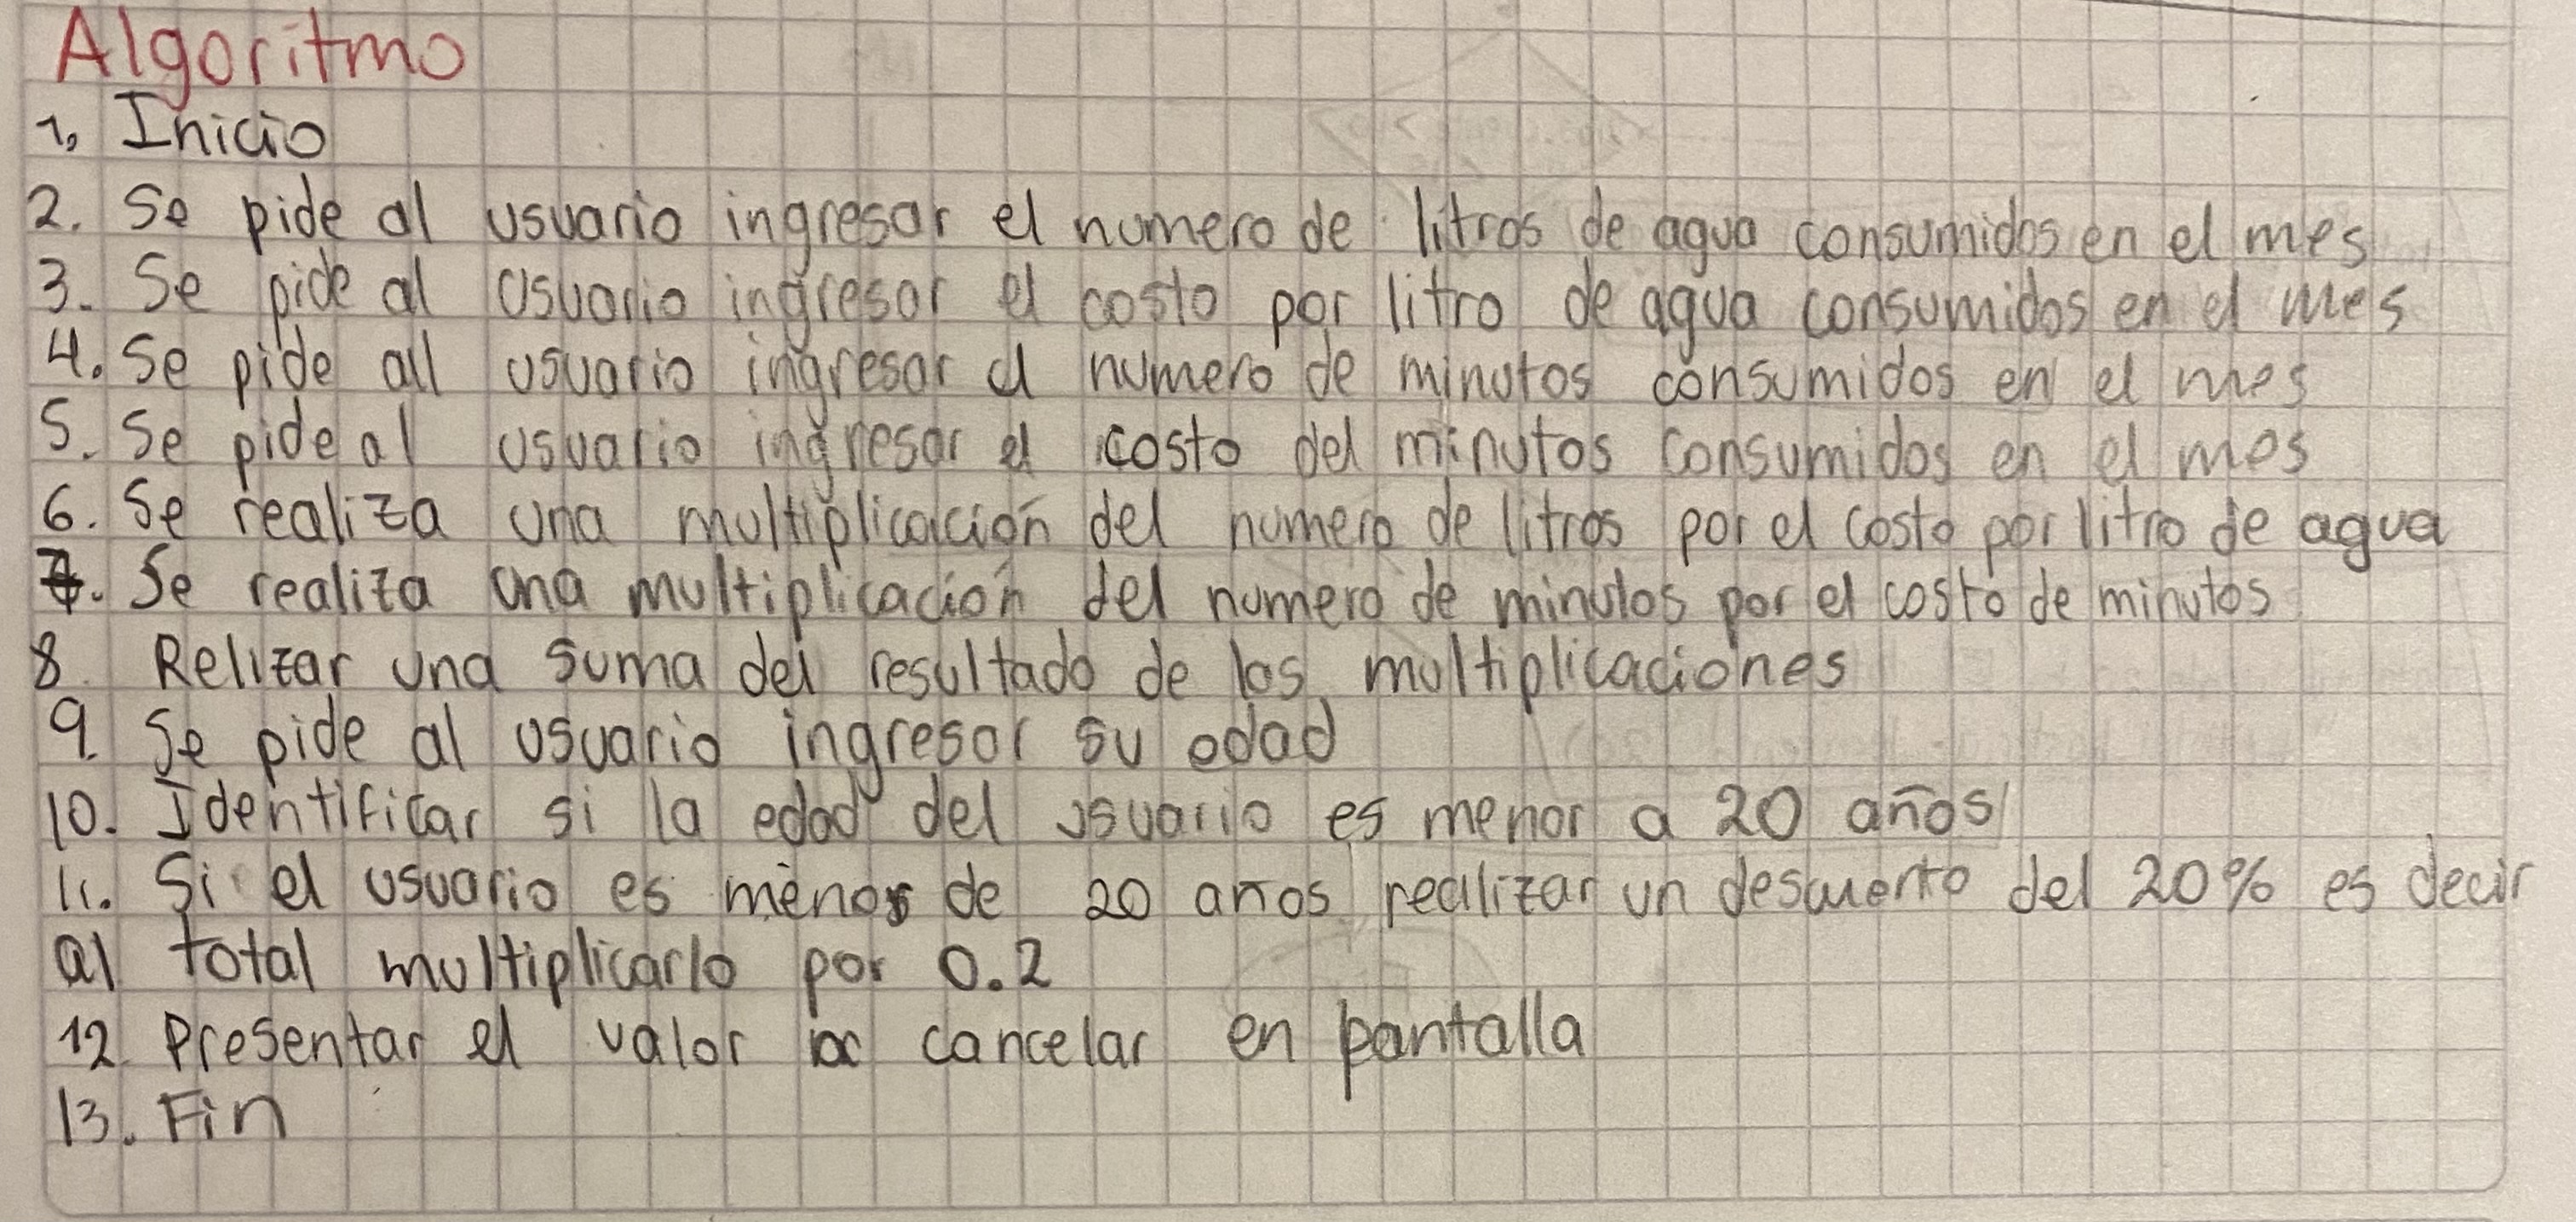 Algoritmo
1. Inicio
2. Se pide al usuario ingresar el numero de litros de agua consumidos en el mes
3. Se pide al usuario ingresar el costo por litro de agua consumidos en el mes
4. Se pide all usuario ingresar el numero de minutos consumidos en el mes
5. Se pide al usuario ingresar el costo del minutos consumidos en el mes
6. Se realiza una multiplicación del numero de litros por el costo por litro de agua
7. Se realiza una multiplicación del numero de minutos por el costo de minutos
8. Relizar una suma del resultado de las multiplicaciones
9. Se pide al usuario ingresar su edad
10. Identificar si la edad del usuario es menor a 20 años
11. Si el usuario es menor de 20 años realizar un descuento del 20% es decir
al total multiplicarlo por 0.2
12. Presentar el valor a cancelar en pantalla
13. Fin